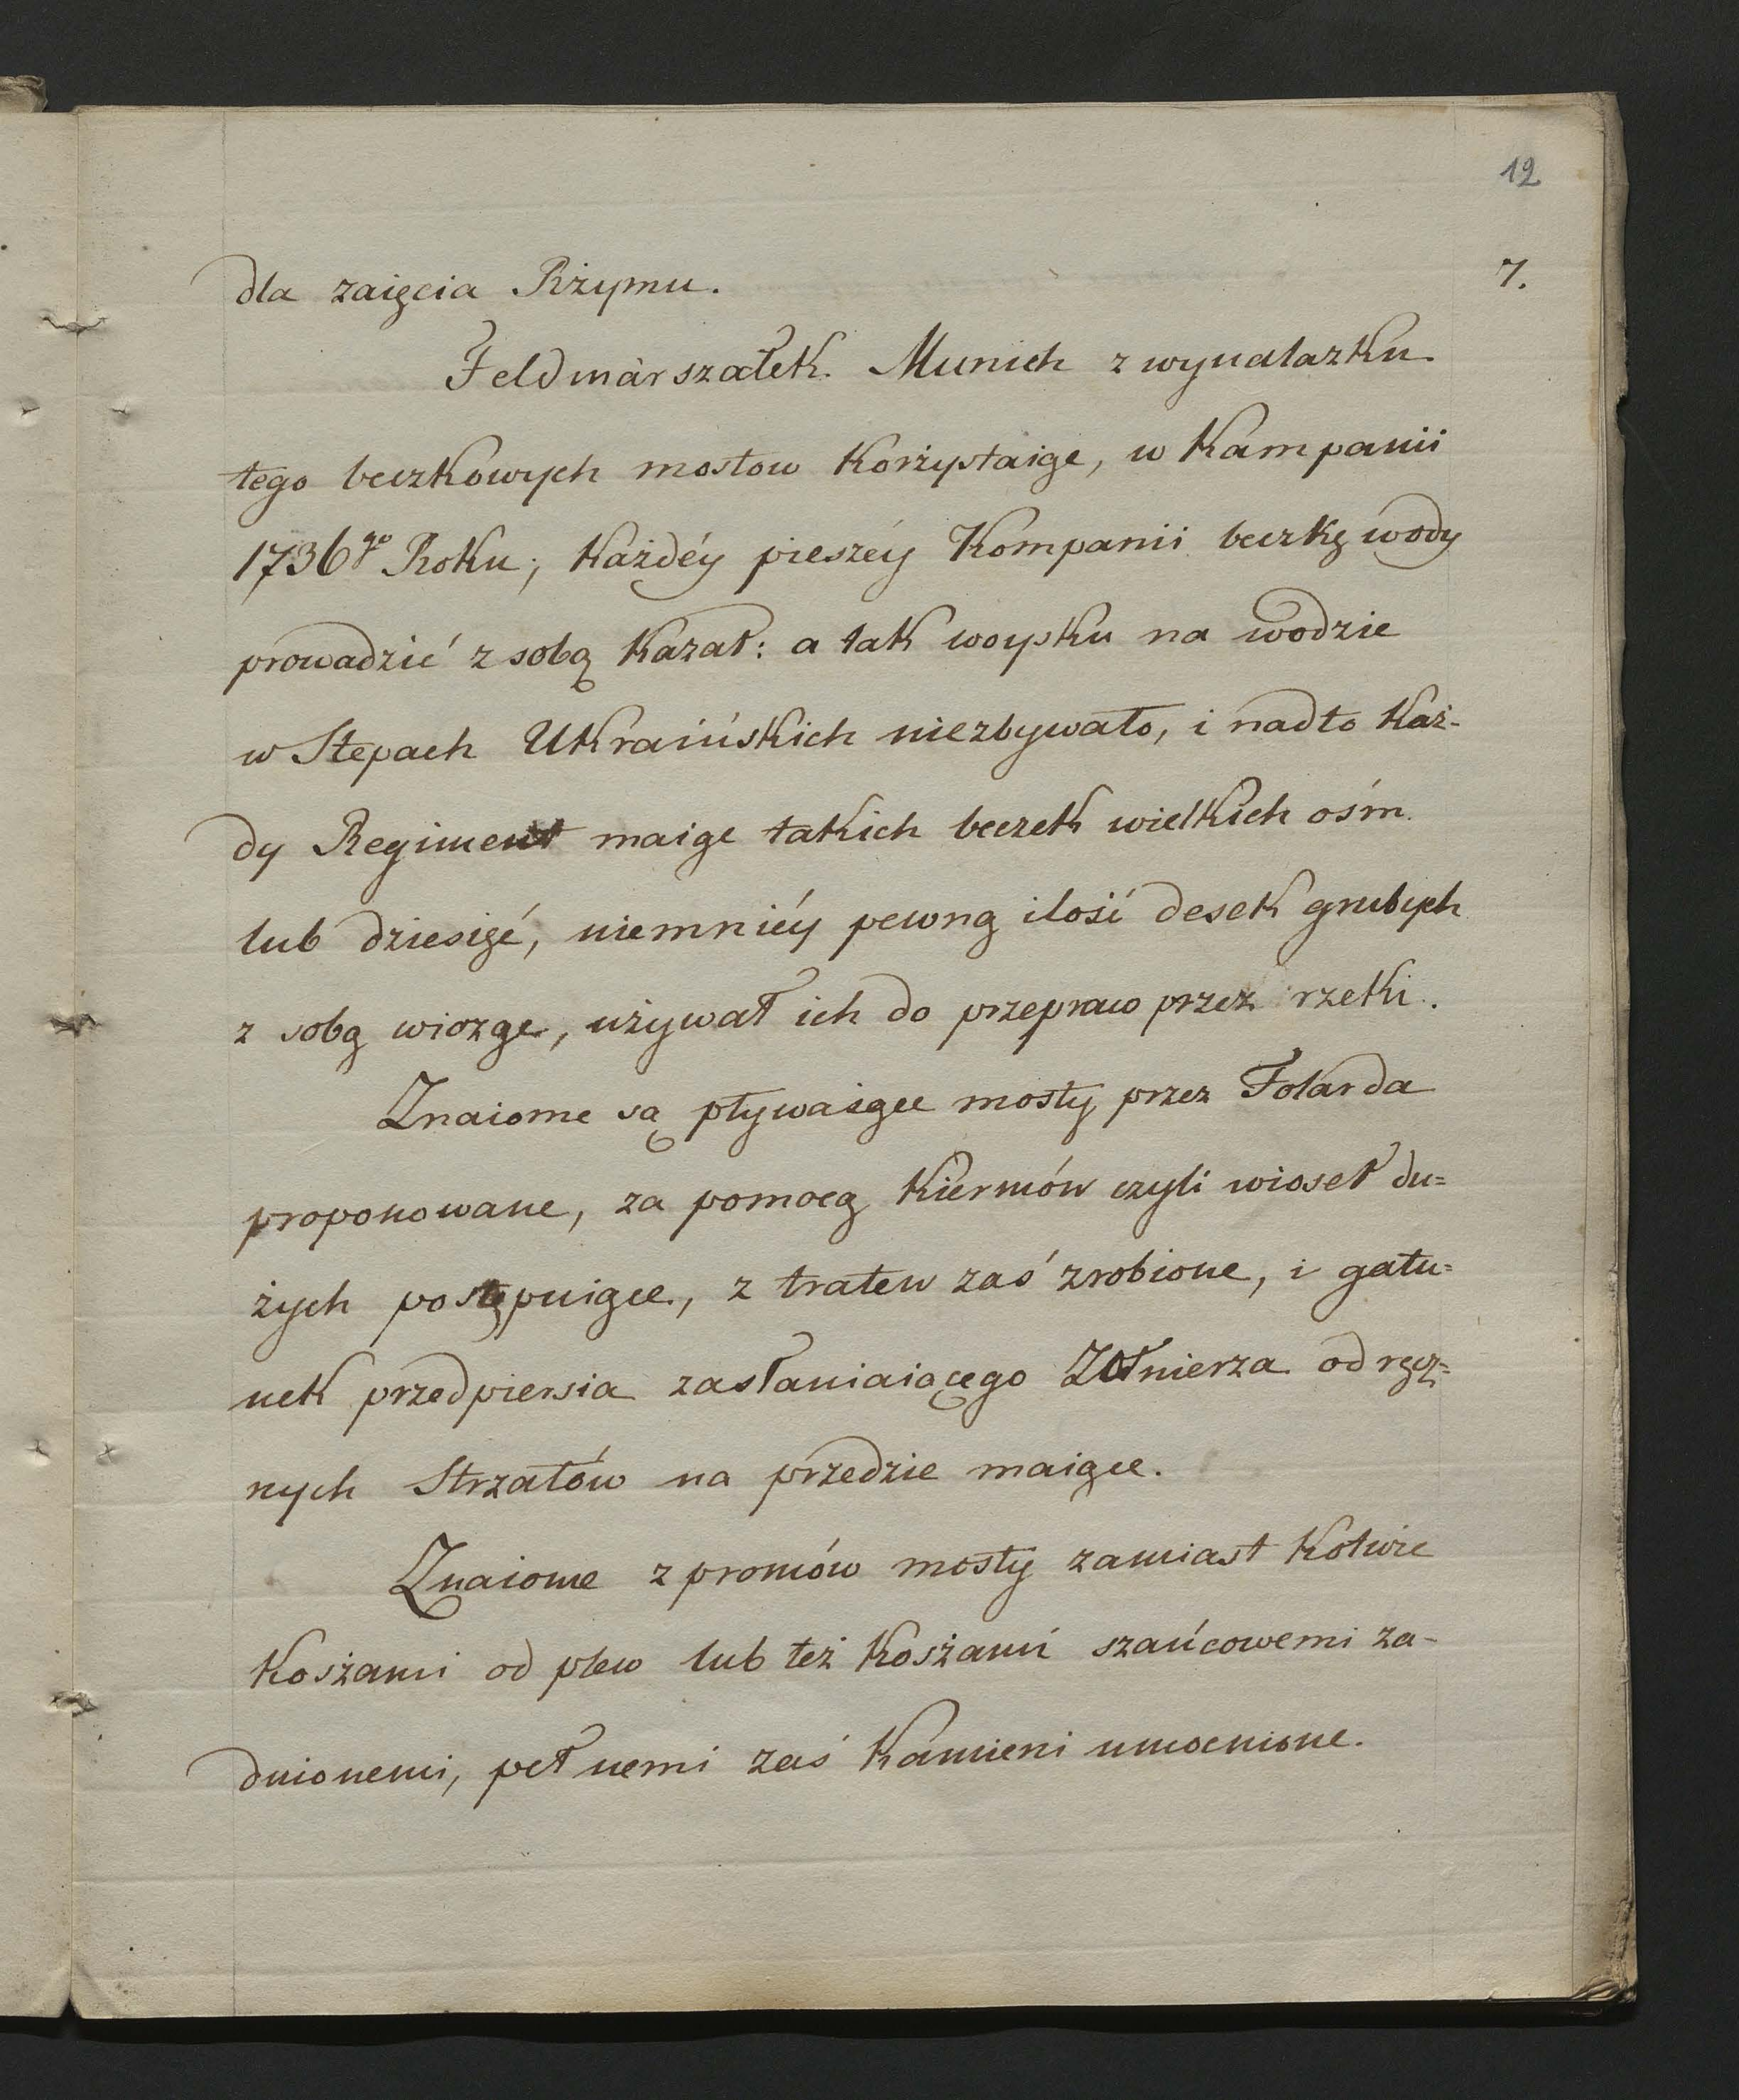 12
7.
dla zaięcia Rżymu.
Feldmarszałek Munich z wynalazku
tego beczkowych mostow korżystaiąc, w kampanii
1736go Roku; każdéy pieszéy Kompanii beczkę wody
prowadzić z sobą kazał: a tak woysku na wodzie
w Stepach Ukraińskich niezbywało, i nadto każ-
dy Regiment maiąc takich beczek wielkich ośm
lub dziesięć, niemniéy pewną ilość desek grubych
z sobą wioząc, używał ich do przepraw przez rzeki.
Znaiome są pływaiące mosty przez Folarda
proponowane, za pomocą kiermów czyli wioseł du=
żych postępuiące, z tratew zaś zrobione, i gatu=
nek przedpiersia zasłaniaiącego Żołnierza od ręcz=
nych Strzałów na przedzie maiące.
Znaiome z promów mosty zamiast kotwic
koszami od plew lub też koszami szańcowemi za-
dnionemi, pełnemi zaś kamieni umocnione.